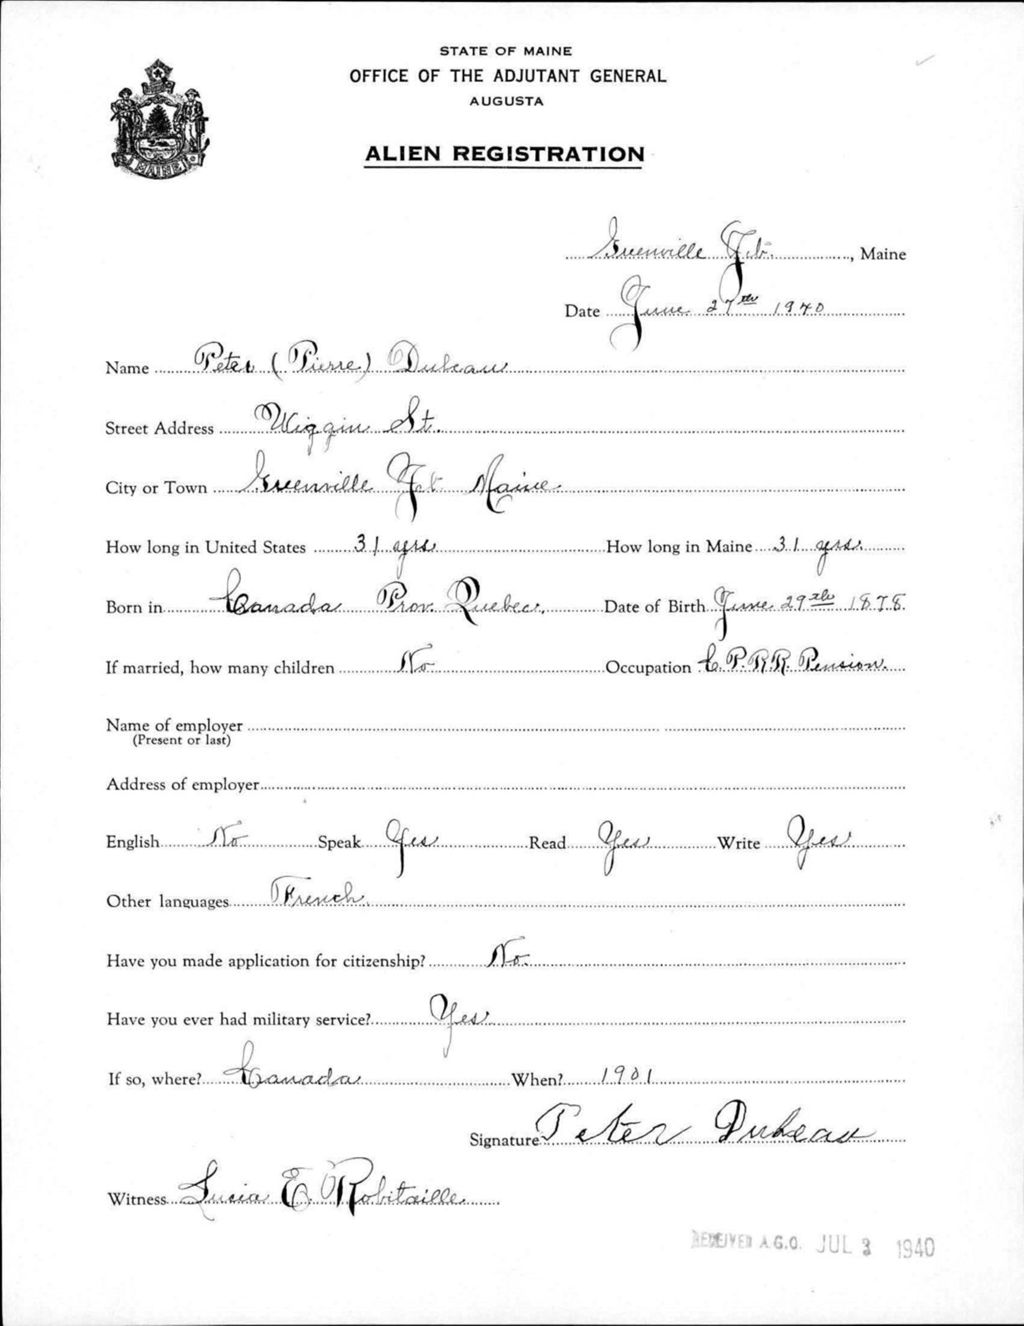 STATE OF MAINE
OFFICE OF THE ADJUTANT GENERAL
AUGUSTA
ALIEN REGISTRATION
MAINE
Greenville Jct. , Maine
Date June 27th 1940
Name Peter (Pierre) Dubeau
Street Address Wiggin St.
City or Town Greenville Jct Maine
How long in United States 31 yrs. How long in Maine 31 yrs.
Born in Canada Prov. Quebec. Date of Birth June 29th 1878.
If married, how many children No Occupation C.P.R.R. Pension.
Name of employer
(Present or last)
Address of employer
English No Speak Yes Read Yes Write Yes
Other languages French.
Have you made application for citizenship? No.
Have you ever had military service? Yes
If so, where? Canada When? 1901
Signature Peter Dubeau
Witness Lucia E. Robitaille
RECEIVED A.G.O. JUL 3 1940